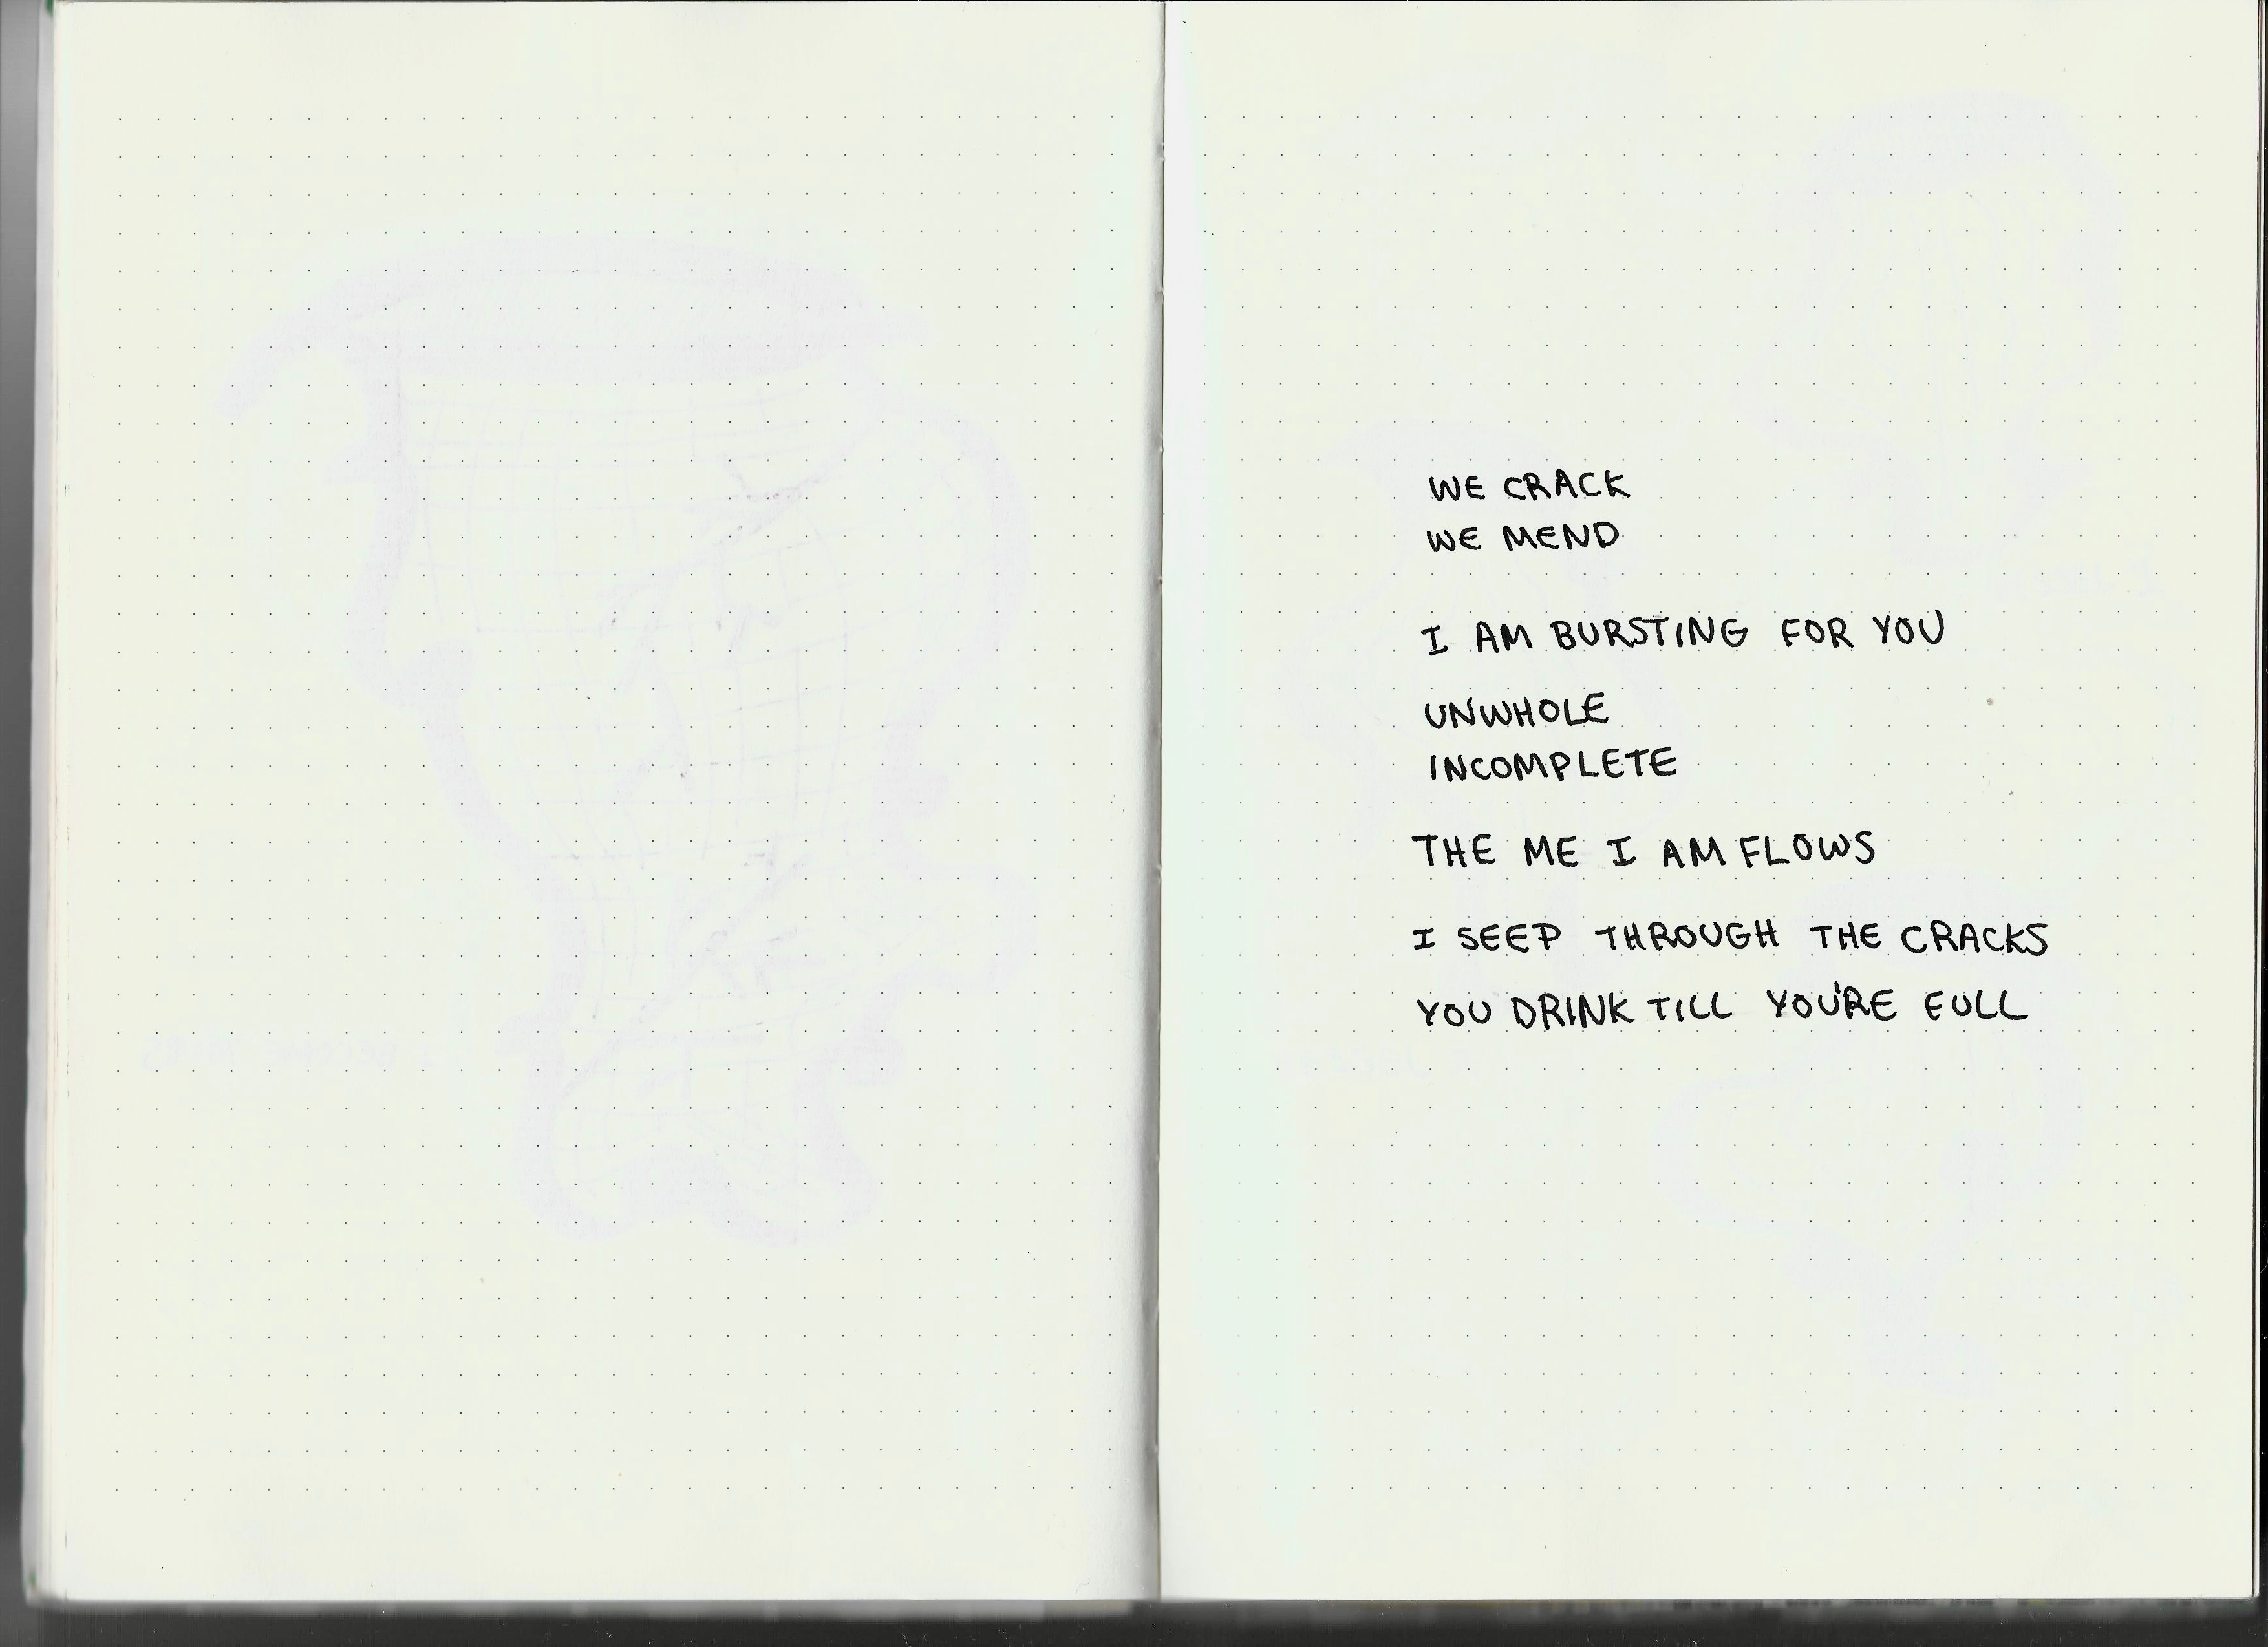 WE CRACK
WE MEND
I AM BURSTING FOR YOU
UNWHOLE
INCOMPLETE
THE ME I AM FLOWS
I SEEP THROUGH THE CRACKS
YOU DRINK TILL YOU'RE FULL